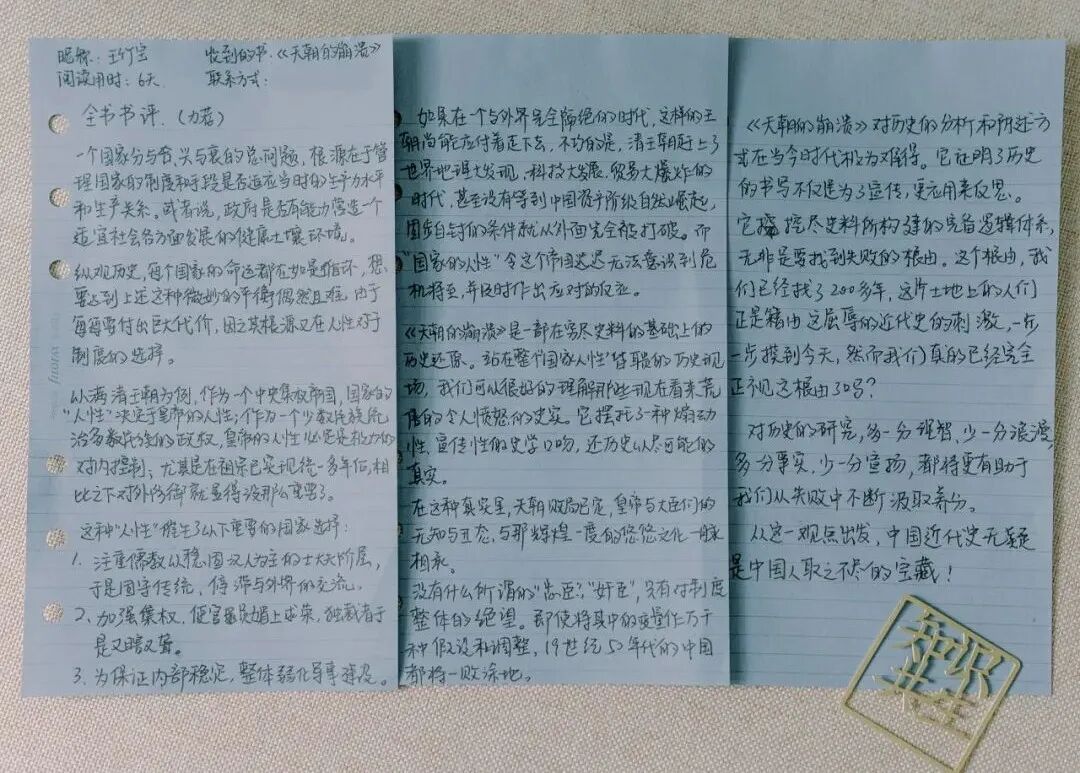 昵称：王竹宝 收到的书：《天朝的崩溃》
阅读用时：6天 联系方式：
全书书评（力荐）
一个国家分与合、兴与衰的总问题，根源在于管
理国家的制度和手段是否适应当时的生产力水平
和生产关系，或者说，政府是否有能力营造一个
适宜社会各方面发展的健康土壤环境。
纵观历史，每个国家的命运都在如是循环，想
要达到上述这种微妙的平衡偶然且难，由于
每每要付出巨大代价，因之其根源又在人性对于
制度的选择。
以满清王朝为例，作为一个中央集权帝国，国家的
“人性”决定于皇帝的人性；作为一个少数民族统
治多数民族的政权，皇帝的人性必定是极力的
对内控制；尤其是在祖宗已实现统一多年后，相
比之下对外防御就显得没那么重要了。
这种“人性”催生了以下重要的国家选择：
1. 注重儒教以稳固汉人为主的士大夫阶层，
于是固守传统，停滞与外界的交流。
2. 加强集权，使官员媚上求荣，独裁者于
是又瞎又聋。
3. 为保证内部稳定，整体弱化军事建设。
如果在一个与外界完全隔绝的时代，这样的王
朝尚能应付着走下去，不巧的是，清王朝赶上了
世界地理大发现、科技大发展、贸易大爆炸的
时代，甚至没有等到中国资产阶级自然崛起，
固步自封的条件就从外面完全被打破。而
“国家的人性”令这个帝国迟迟无法意识到危
机将至，并及时作出应对的反应。
《天朝的崩溃》是一部在穷尽史料的基础上的
历史还原。站在整个“国家人性”皆聪的历史现
场，我们可以很好的理解那些现在看来荒
唐的令人愤怒的史实。它摆脱了一种煽动
性、宣传性的史学口吻，还历史以尽可能的
真实。
在这种真实里，天朝败局已定，皇帝与大臣们的
无知与丑态，与那辉煌一度的悠悠文化一脉
相承。
没有什么所谓的“忠臣”、“奸臣”，只有对制度
整体的绝望。即使将其中的变量作万千
种假设和调整，19世纪50年代的中国
都将一败涂地。
《天朝的崩溃》对历史的分析和阐述方
式在当今时代极为难得。它证明了历史
的书写不仅是为了宣传，更应用来反思。
它挖尽史料所构建的完备逻辑体系，
无非是要找到失败的根由。这个根由，我
们已经找了200多年，这片土地上的人们
正是藉由这屈辱的近代史的刺激，一步
一步摸到今天，然而我们真的已经完全
正视这根由了吗？
对历史的研究，多一分理智、少一分浪漫，
多一分事实，少一分宣扬，都将更有助于
我们从失败中不断汲取养分。
从这一观点出发，中国近代史无疑
是中国人取之不尽的宝藏！
知识
共生